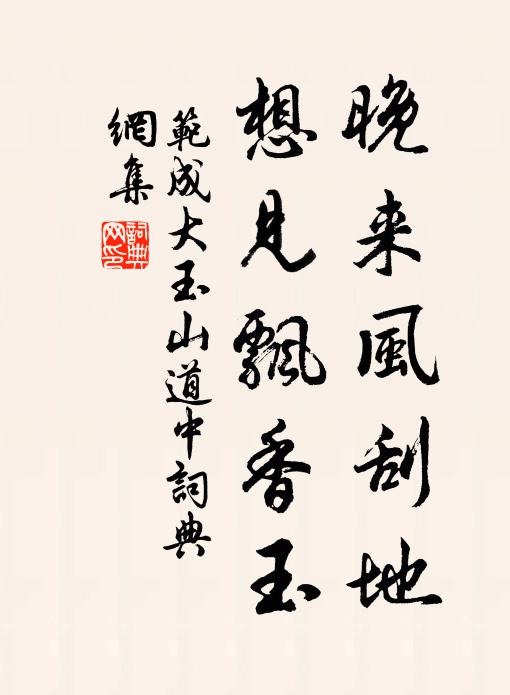 晚来風刮地
想見飄香玉
範成大玉山道中詞典
網集
詞典
网印